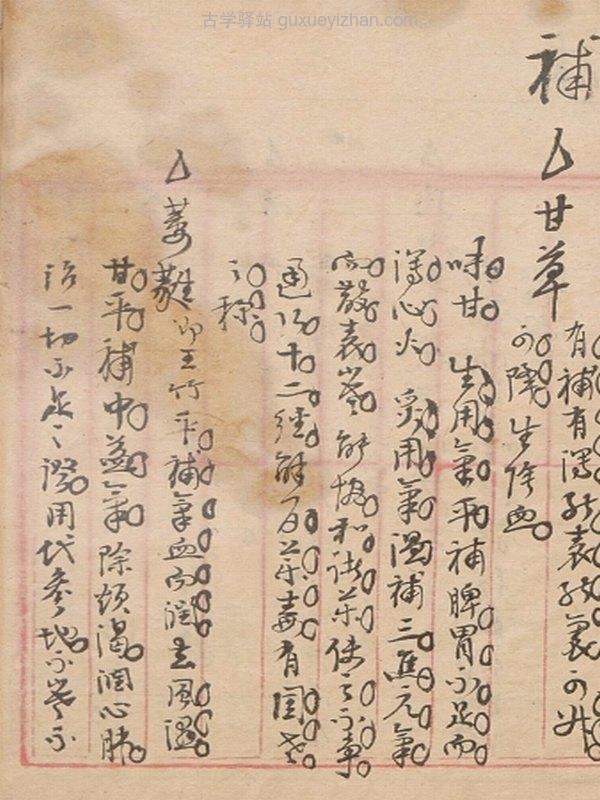 古学驿站 guxueyizhan.com
補
△甘草 有補有瀉能表能裏可升
可降 生除血
味甘 生用氣平補脾胃不足而
瀉心火 炙用氣溫補三焦元氣
而散表寒 能協和諸藥使之不爭
通行十二經解百藥毒有國老
之称
△萎蕤 即玉竹 平補氣血而潤去風濕
甘平補中益氣 除煩渴潤心肺
治一切不足之證用代參地不寒不